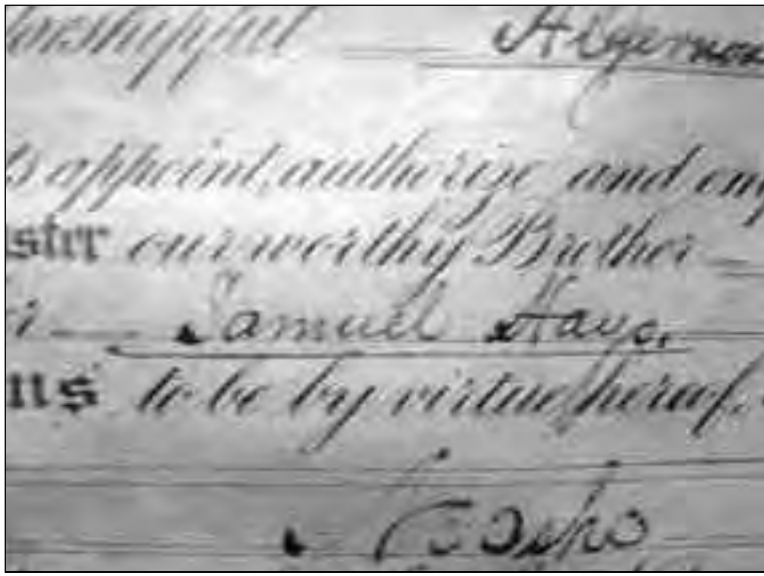 orshipful Algernon
ts appoint, authorize and emp
ster our worthy Brother
Samuel Hayo.
ns to be by virtue thereof,